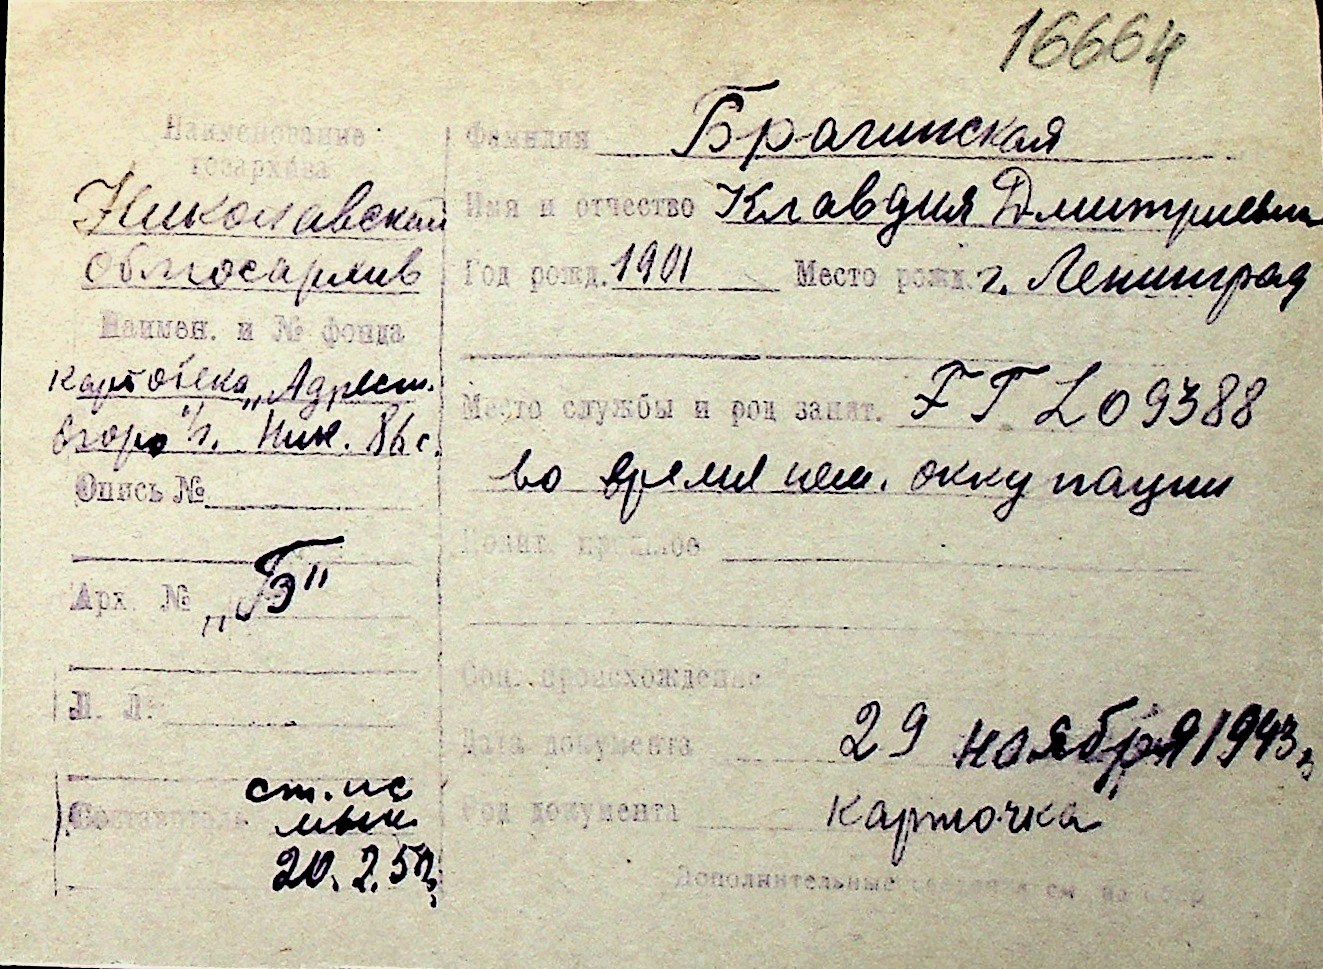 16664
Наименование
госархива
Николаевский
облгосархив
Наимен. и № фонда
Картотека „Адресн.
бюро" г. Ник. 86 с.
Опись №
Арх. № „Б"
Л. Л.
Составитель ст. нс
20. 2. 5
Фамилия Брагинская
Имя и отчество Клавдия Дмитриевна
Год рожд. 1901 Место рожд. г. Ленинград
Место службы и род занят. FT L 09388
во время нем. оккупации
Полит. прошлое
Соц. происхождение
Дата документа 29 ноября 1943 г.
Род документа карточка
Дополнительные сведения см. на обор